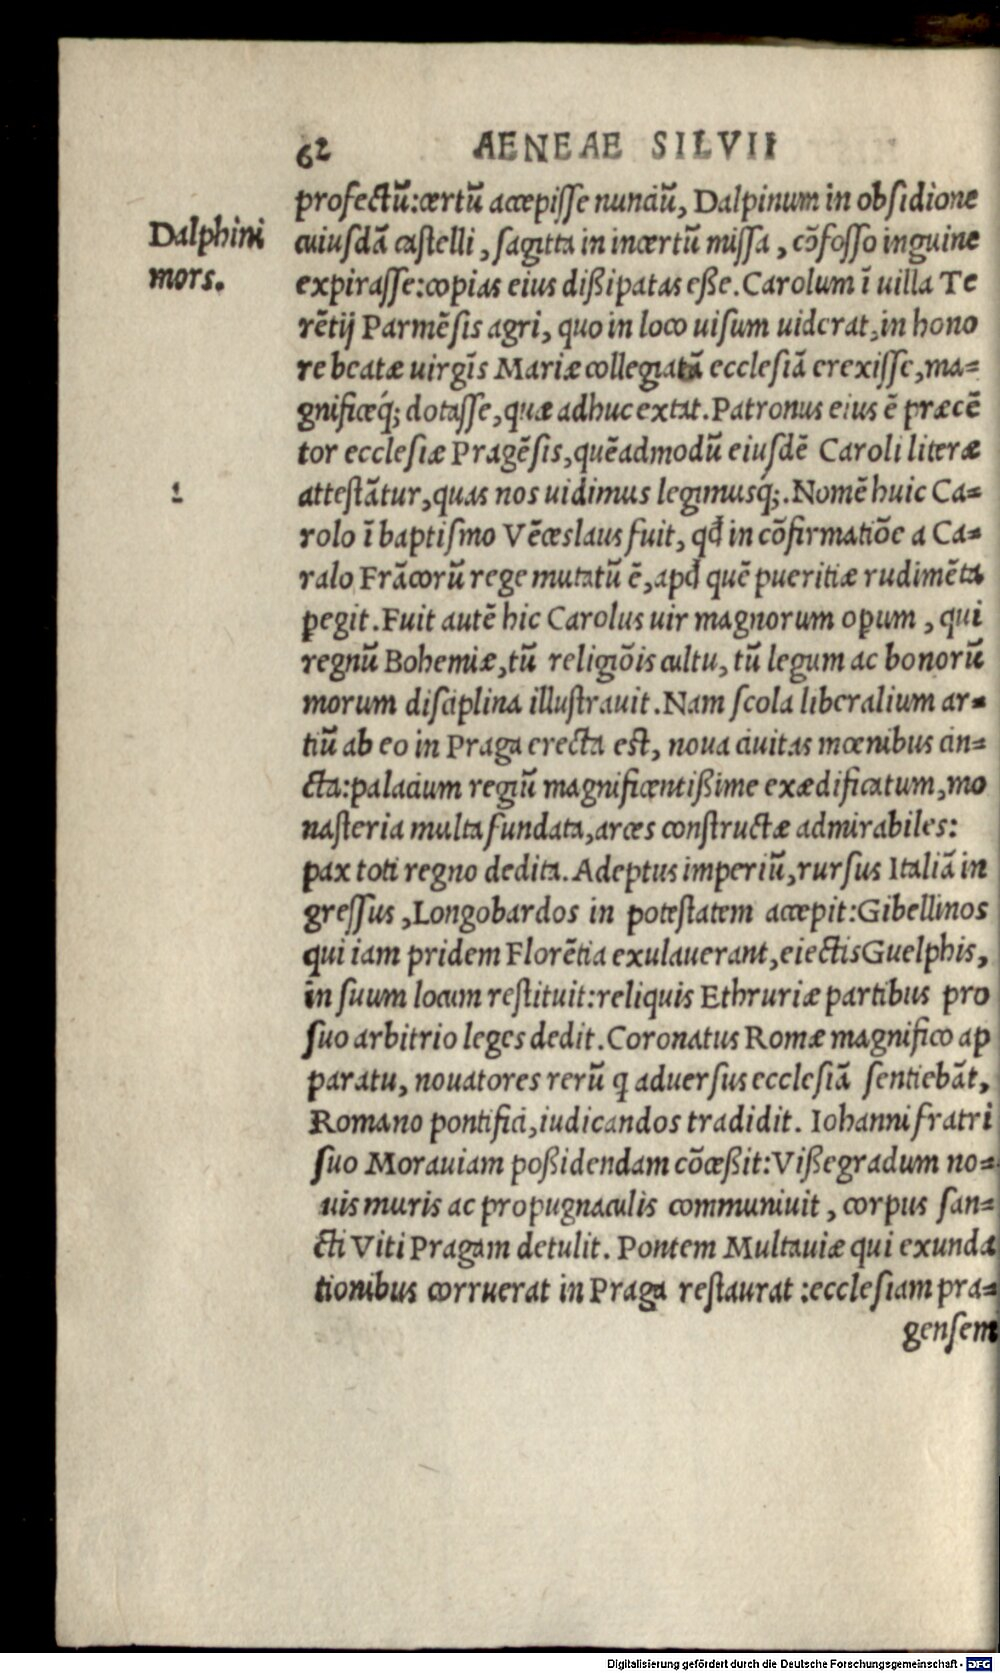 62 AENEAE SILVII
profectū:certū accepiſſe nunciū, Dalpinum in obſidione
Dalphini
mors.
cuiuſdā caſtelli, ſagitta in incertū miſſa, cōfoſſo inguine
expiraſſe:copias eius dißipatas eße. Carolum ī uilla Te
rētij Parmēſis agri, quo in loco uiſum uiderat, in hono
re beatæ uirgīs Mariæ collegiatā eccleſiā erexiſſe, ma=
gnificeq́; dotaſſe, quæ adhuc extat. Patronus eius ē præcē
tor eccleſiæ Pragēſis, quēadmodū eiuſdē Caroli literæ
1
atteſtātur, quas nos uidimus legimusq́;. Nomē huic Ca=
rolo ī baptiſmo Vēceslaus fuit, qđ in cōfirmatiōe a Ca=
ralo Frācorū rege mutatū ē, apđ quē pueritiæ rudimēta
ꝑegit. Fuit autē hic Carolus uir magnorum oꝑum, qui
regnū Bohemiæ, tū religiōis cultu, tū legum ac bonorū
morum diſciplina illuſtrauit. Nam ſcola liberalium ar=
tiū ab eo in Praga erecta eſt, noua ciuitas mœnibus cin=
cta:palacium regiū magnificentißime exædificatum, mo
naſteria multa fundata, arces conſtructæ admirabiles:
pax toti regno dedita. Adeptus imperiū, rurſus Italiā in
greſſus, Longobardos in poteſtatem accepit:Gibellinos
qui iam pridem Florētia exulauerant, eiectis Guelphis,
in ſuum locum reſtituit:reliquis Ethruriæ partibus pro
ſuo arbitrio leges dedit. Coronatus Romæ magnifico ap
paratu, nouatores rerū q aduerſus eccleſiā ſentiebāt,
Romano pontifici, iudicandos tradidit. Iohanni fratri
ſuo Morauiam poßidendam cōceßit:Vißegradum no=
uis muris ac propugnaculis communiuit, corpus ſan=
cti Viti Pragam detulit. Pontem Multauiæ qui exunda
tionibus corruerat in Praga reſtaurat:eccleſiam pra=
genſem
Digitalisierung gefördert durch die Deutsche Forschungsgemeinschaft - DFG